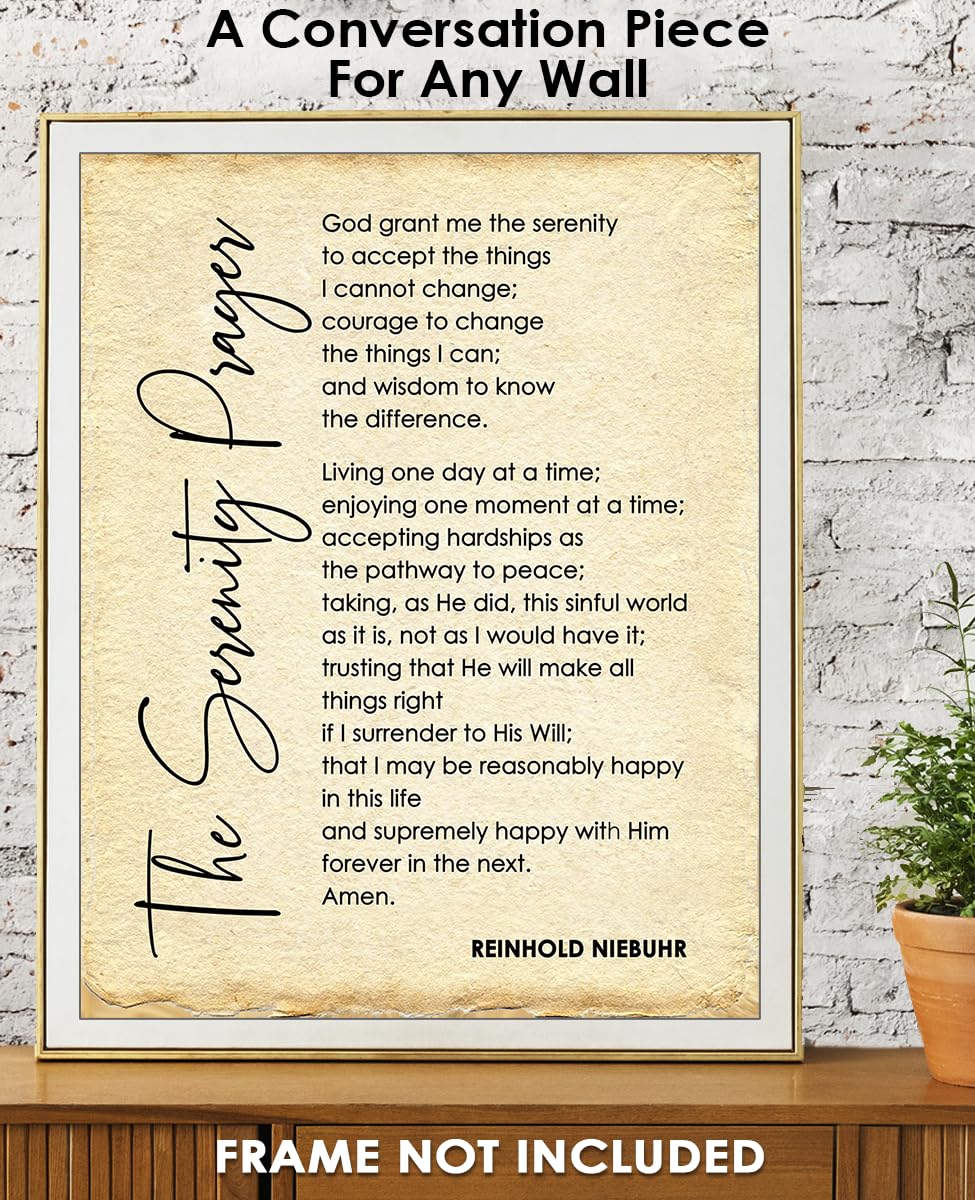 A Conversation Piece
For Any Wall
The Serenity Prayer
God grant me the serenity
to accept the things
I cannot change;
courage to change
the things I can;
and wisdom to know
the difference.
Living one day at a time;
enjoying one moment at a time;
accepting hardships as
the pathway to peace;
taking, as He did, this sinful world
as it is, not as I would have it;
trusting that He will make all
things right
if I surrender to His Will;
that I may be reasonably happy
in this life
and supremely happy with Him
forever in the next.
Amen.
REINHOLD NIEBUHR
FRAME NOT INCLUDED